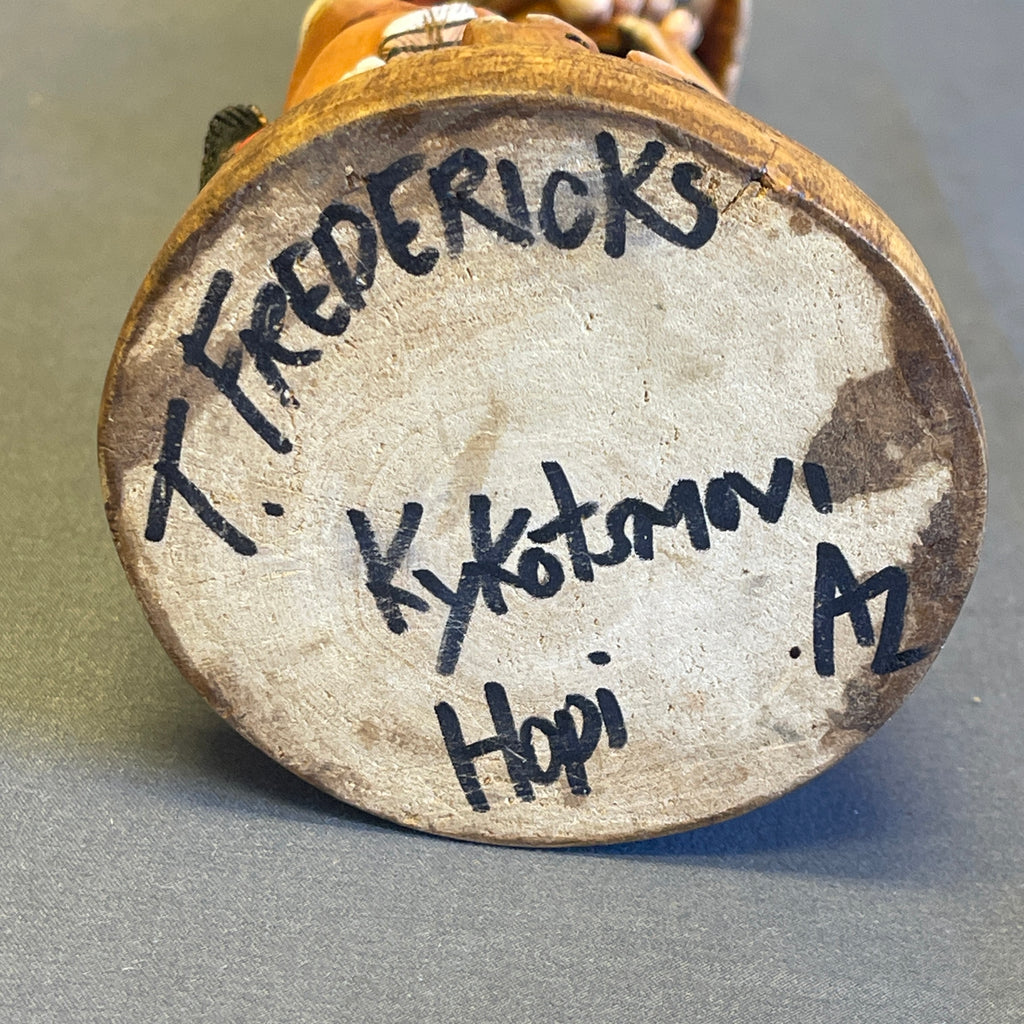 T. FREDERICKS
Kykotsmovi
AZ
Hopi